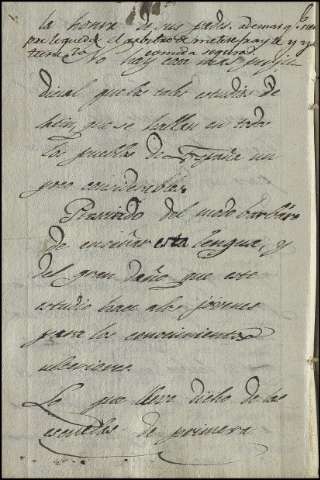 la honra de sus padres. ademas q.
por le queda el arbitro de meterse frayle y y
tiene la comida segura
No hay cosa mas perju-
dicial que las tales estudios de
latin, que se hallan en todos
los pueblos de España un
poco considerables
Prescindo del modo barbaro
de enseñar esta lengua, y
del gran daño que este
estudio hace a los jovenes
para los conocimientos
ulteriores.
Lo que llevo dicho de las
escuelas de primera